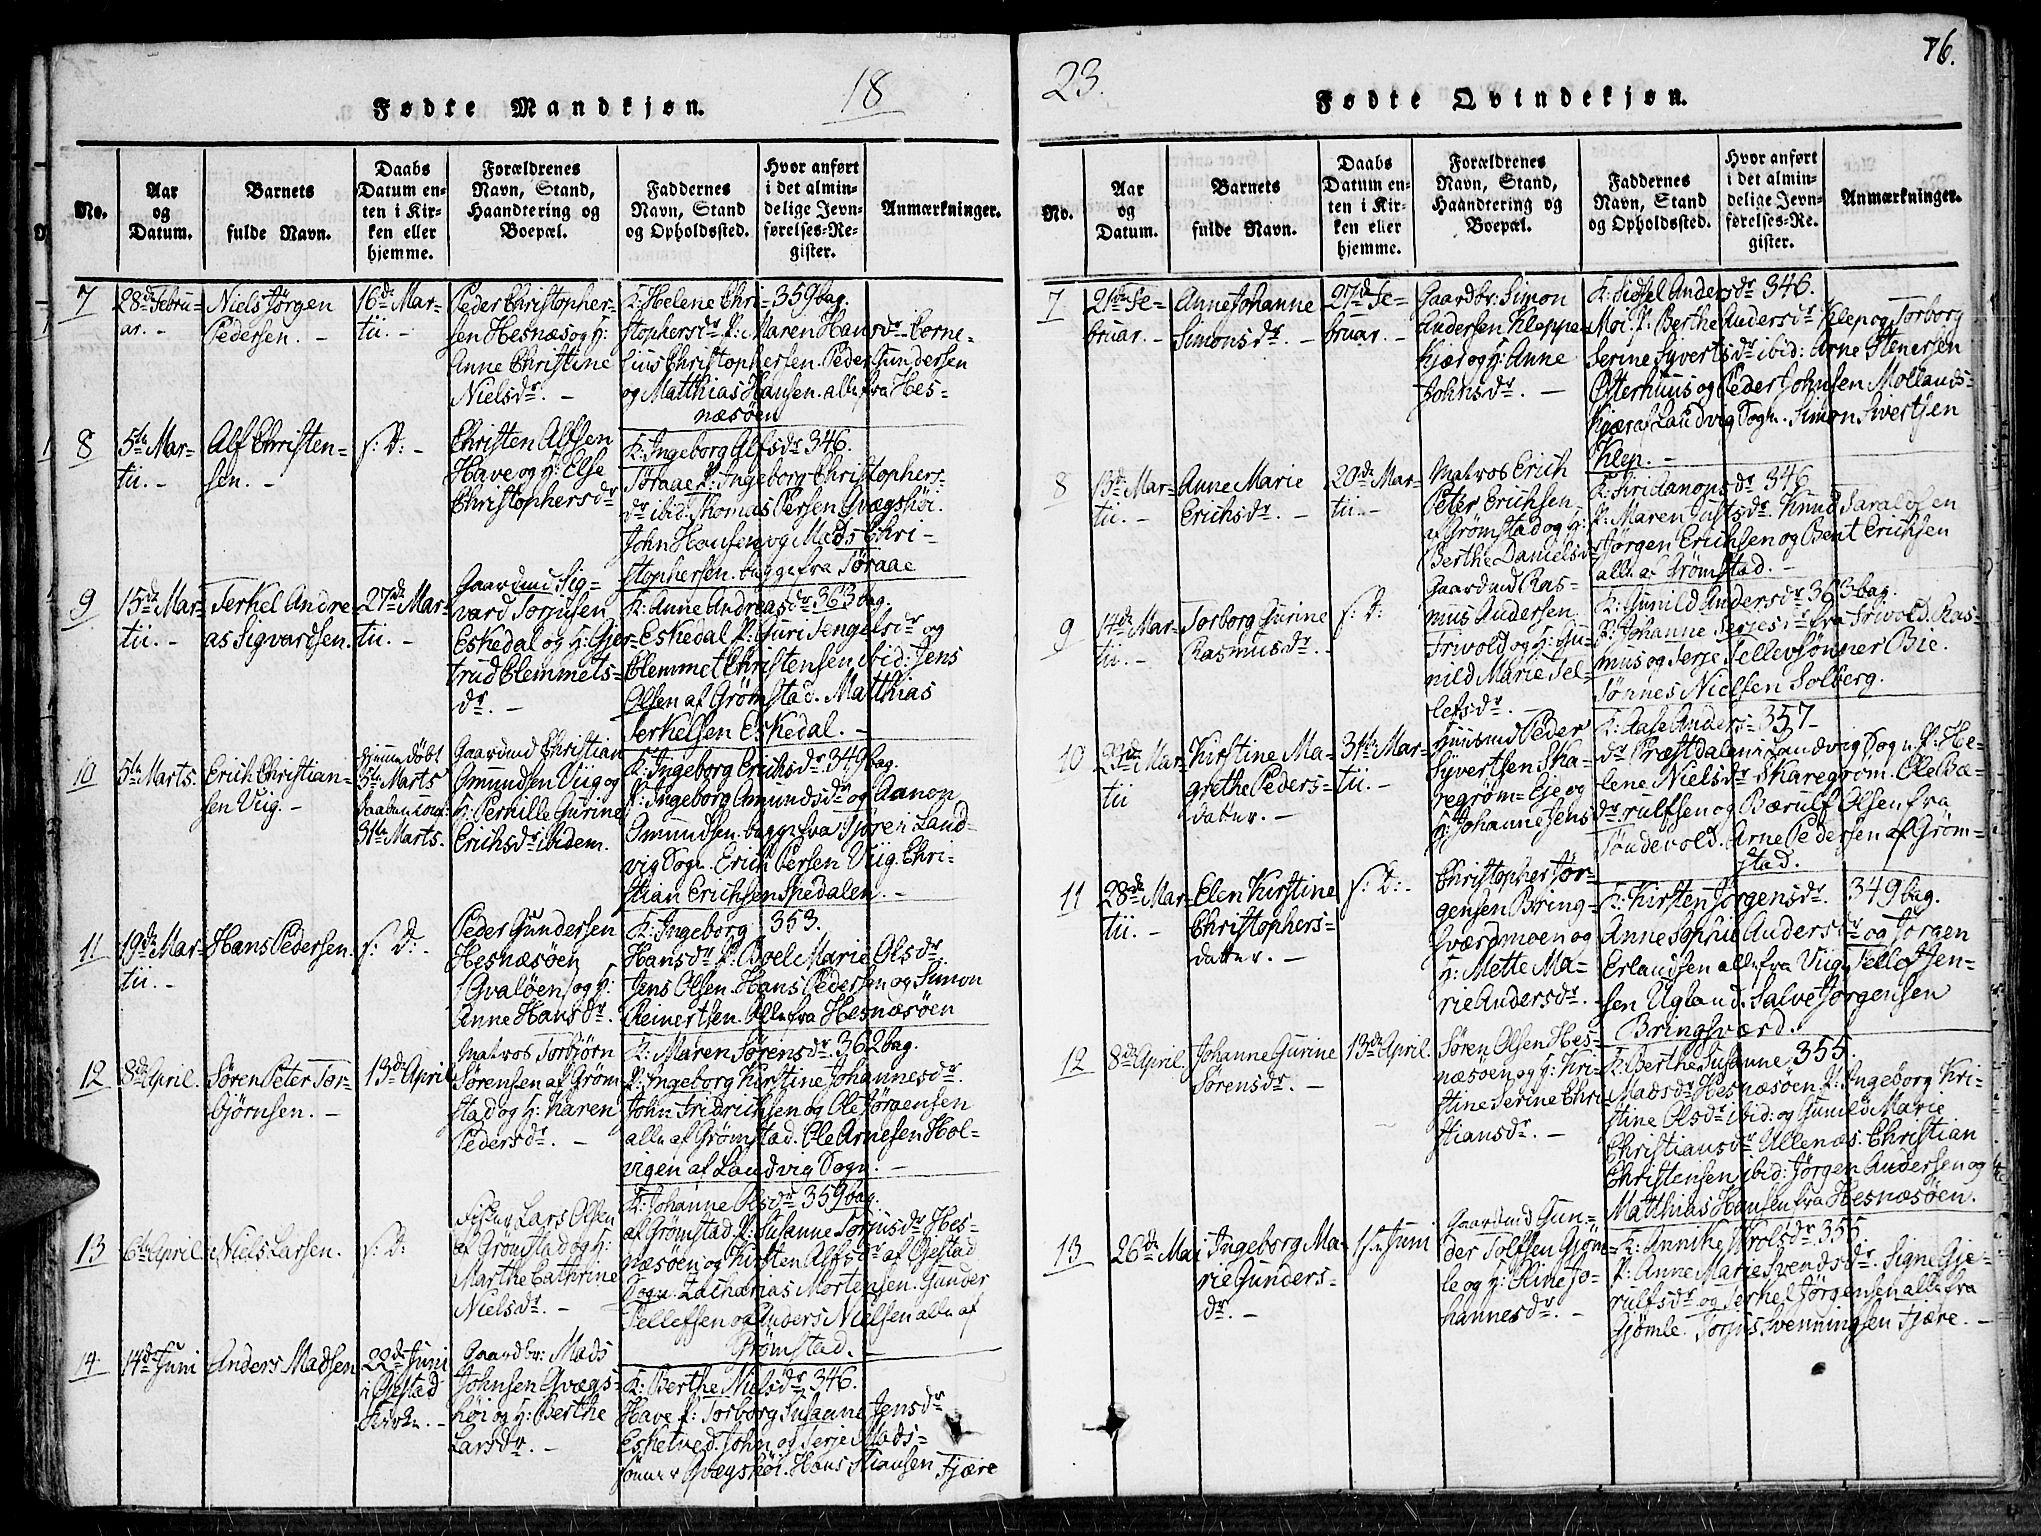 18
Fødte Mandkjøn.
No.
Aar
og
Datum.
Barnets
fulde Navn.
Daabs
Datum en-
ten i Kir-
ken eller
hjemme.
Forældrenes
Navn, Stand,
Haandtering og
Boepæl.
Faddernes
Navn, Stand
og Opholdssted.
Hvor anført
i det almin-
delige Jevn-
førelses-Re-
gister.
Anmærkninger.
7
28de Febru-
ar. -
Niels Jörgen
Pedersen. -
16de Mar-
tii. -
Peder Christopher-
sen Hesnæs og H:
Anne Christine
Nielsdr. -
K: Helene Chri- 359 bag.
stophersdr P: Maren Hansdr. Corne-
lius Christophersen. Peder Gundersen
og Matthias Hansen. alle fra Hes-
næsöen
8
5te Mar-
tii. -
Alf Christen-
sen. -
s: D: -
Christen Alfsen
Have og H: Else
Christophersdr
K: Ingeborg Alfsdr 346.
Töraae P: Ingeborg Christophers-
dr ibid. Thomas Persen Qvægshöi.
John Hansen og Mads Chri-
stophersen. begge fra Töraae
9
15de Mar-
tii. -
Terkel Andre-
as Sigvardsen.
27de Mar-
tii. -
Gaardmd Sig-
vard Torjusen
Eskedal og H: Gjer-
trud Clemmets-
dr. -
K: Anne Andreasdr 363 bag.
Eskedal P: Guri Tengelsdr og
Clemmet Christensen ibid: Jens
Olsen af Grömstad. Matthias
Terkelsen Eskedal. -
10
5te Marts.
Erich Christian-
sen Viig. -
hjemmedöbt
5te Marts
31te Marts.
Gaardmd Christian
Omundsen Viig og
H: Pernille Gurine
Erichsdr ibidem.
K: Ingeborg Erichsdr 349 bag.
P: Ingeborg Omundsdr og Aanon
Omundsen. begge fra Tjore i Land-
vig Sogn. Erich Persen Viig. Chri-
stian Erichsen Spedalen. -
11
19de Mar-
tii. -
Hans Pedersen.
s: D: -
Peder Gundersen
Hesnæsöen
(Qvalöen) og H:
Anne Hansdr.
K: Ingeborg 353.
Hansdr P: Boel Marie Olsdr.
Jens Olsen. Hans Pedersen og Simon
Reinertsen. Alle fra Hesnæsöen
12
8de April.
Sören Peter Tor-
björnsen. -
13de April
Matros Torbjörn
Sörensen af Gröm-
stad og H: Karen
Pedersdr. -
K: Maren Sörensdr. 362 bag.
P: Ingeborg Kirstine Johannesdr.
John Fridrichsen og Ole Jörgensen
alle af Grömstad. Ole Arnesen Hol-
vigen af Landvig Sogn. -
13
6te April.
Niels Larsen.
s: D:
Fisker Lars Olsen
af Grömstad og H:
Marthe Cathrine
Nielsdr. -
K: Johanne Olsdr 359 bag.
af Grömstad. P: Susanne Torjusdr Hes-
næsöen og Kirsten Alfsdr af Öjestad
Sogn. Zacharias Mortensen. Gunder
Tellefsen og Anders Nielsen alle af
Grömstad. -
14
14de Juni
Anders Madsen
22de Juni
i Öjestad
Kirke. -
Gaardbr: Mads
Johnsen Qvægs-
höi og H: Berthe
Larsdr. -
K: Berthe Nielsdr 346.
Have P: Torborg Susanne Jensdr
Esketved. John og Terje Mads-
sönner Qvægshöi. Hans Stiansen Fjære
76.
23.
Fødte Qvindekjøn.
No.
Aar
og
Datum.
Barnets
fulde Navn.
Daabs
Datum en-
ten i Kir-
ken eller
hjemme.
Forældrenes
Navn, Stand,
Haandtering og
Boepæl.
Faddernes
Navn, Stand
og Opholdssted.
Hvor anført
i det almin-
delige Jevn-
førelses-Re-
gister.
Anmærkninger.
7
21de Fe-
bruar. -
Anne Johanne
Simonsdr. -
27de Fe-
bruar. -
Gaardbr: Simon
Andersen Kleppe-
kjær og H: Anne
Johnsdr. -
K: Sidsel Andersdr 346.
Moi. P: Berthe Andersdr Klep og Torborg
Serine Syvertsdr ibid: Arne Stenersen
Österhuus og Peder Johnsen Mollands-
kjær af Landvig Sogn. Simon Sivertsen
Klep. -
8
13de Mar-
tii. -
Anne Marie
Erichsdr. -
20de Mar-
tii. -
Matros Erich
Peter Erichsen
af Grömstad og H:
Berthe Danielsdr
K: Siri Aanonsdr 346
P: Maren Justsdr. Knud Saraldsen
Jörgen Erichsen og Bent Erichsen
alle af Grömstad. -
9
14de Mar-
tii. -
Torborg Gurine
Rasmusdr. -
s: D:
Gaardmd Ras-
mus Andersen
Trivold og H: Gu-
nild Marie Tel-
lefsdr. -
K: Gunild Andersdr 363 bag.
P: Johanne Terjesdr fra Trivold. Ras-
mus og Terje Tellevsönner Bie.
Tönnes Nielsen Solberg.
10
23de Mar-
tii
Kirstine Ma-
grethe Peders-
datter. -
31te Mar-
tii. -
Huusmd Peder
Syvertsen Ska-
regröm-Eje og
H: Johanne Jensdr
K: Aase Anders- 357 -
dr Præstdalen i Landvig Sogn. P: He-
lene Nielsdr Skaregröm. Ole Bæ-
rulfsen og Bærulf Olsen fra
Töndevold. Arne Pedersen af Gröm-
stad.
11
28de Mar-
tii. -
Elen Kirstine
Christophers-
datter. -
s: D: -
Christopher Jör-
gensen Bring-
sværdmoen og
H: Mette Ma-
rie Andersdr.
K: Kirsten Jörgensdr. 349 bag.
Anne Sophie Andersdr og Jörgen
Erlandsen alle fra Viig. Tellef Jen-
sen Ugland. Salve Jörgensen
Bringsværd.
12
8de April.
Johanne Gurine
Sörensdr. -
13de April.
Sören Olsen Hes-
næsöen og H: Kri-
stine Serine Chri-
stiansdr. -
K: Berthe Susanne 355.
Madsdr Hesnæsöen. P: Ingeborg Kri-
stine Olsdr ibid: og Gunild Marie
Christiansdr Ullenæs. Christian
Christensen ibid: Jörgen Andersen og
Matthias Hansen fra Hesnæsöen.
13
26de Mai
Ingeborg Ma-
rie Gunders-
dr. -
1ste Juni
Gaardmd Gun-
der Tolfsen Gjöm-
le og H: Rine Jo-
hannesdr. -
K: Annike Trolsdr 355.
P: Anne Marie Svendsdr. Signe Gje-
rulfsdr og Terkel Jörgensen alle fra
Gjömle. Torjus Svenningsen Fjære. -